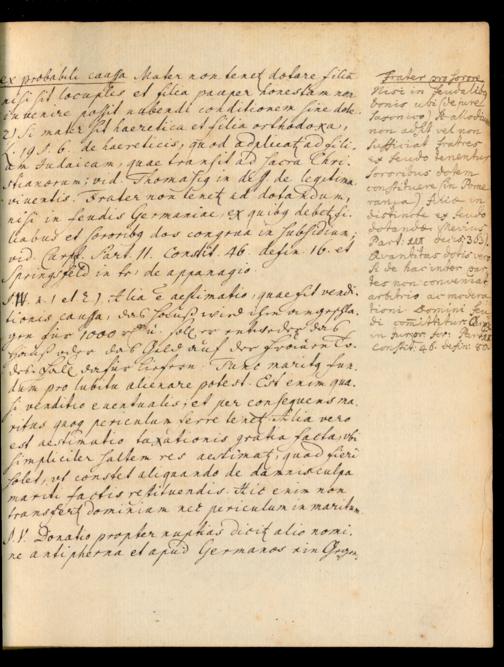 ex probabili causa Mater non tenet dotare filiã
nisi sit locuples et filia pauper honestam non
invenire possit nubendi conditionem sine dote.
2) Si mater sit haeretica et filia orthodoxa,
l. 19 §. 6. de haereticis, quod adplicat ad fili-
am Judaicam, quae transit ad sacra Chri-
stianorum; vid. Thomasig in de legitima
viventis. Frater non tenet ad dotandum,
nisi in feudis Germaniae, ex quibg debet fi-
liabus et sororibg dos congrua in subsidium;
vid. Carpz. Part. 11. Constit. 46. defin. 16. et
Springsfeld in tr. de apanagio.
§. IV. n. 1 et 2) Alia e aestimatio, quae fit vendi-
tionis causa, das wird ihm angeschla-
gen für 1000 soll er entweder das
Hauß oder das Geld auf der
Fall dafür liefern. Tunc maritg fun-
dum pro lubitu alienare potest. Est enim qua-
si venditio eventualis; et per consequens ma-
ritus quog periculum ferre tenet. Alia vero
est aestimatio taxationis gratia facta, ubi
simpliciter saltem res aestimat, quod fieri
solet, ut constet aliquando de damnis culpa
mariti factis restituendis. Hic enim non
transfert dominium nec periculum in maritum
§. V. Donatio propter nuptias dicit alio nomi-
ne antipherna et apud Germanos ein
Frater pro sorore
Nisi in feudalibg
bonis ubi (de jure
Saxonico) si allodium
non adest vel non
sufficiat fratres
ex feudo tenentur
sororibus dotem
constituere (in Pome-
rania) filia in-
distincte ex feudo
dotanda
Part. III
Quantitas dotis vero
si de hac inter par-
tes non conveniat
arbitrio ac modera-
tioni Domini feu-
di comittitur
in Part. III
Constit. 46. defin.